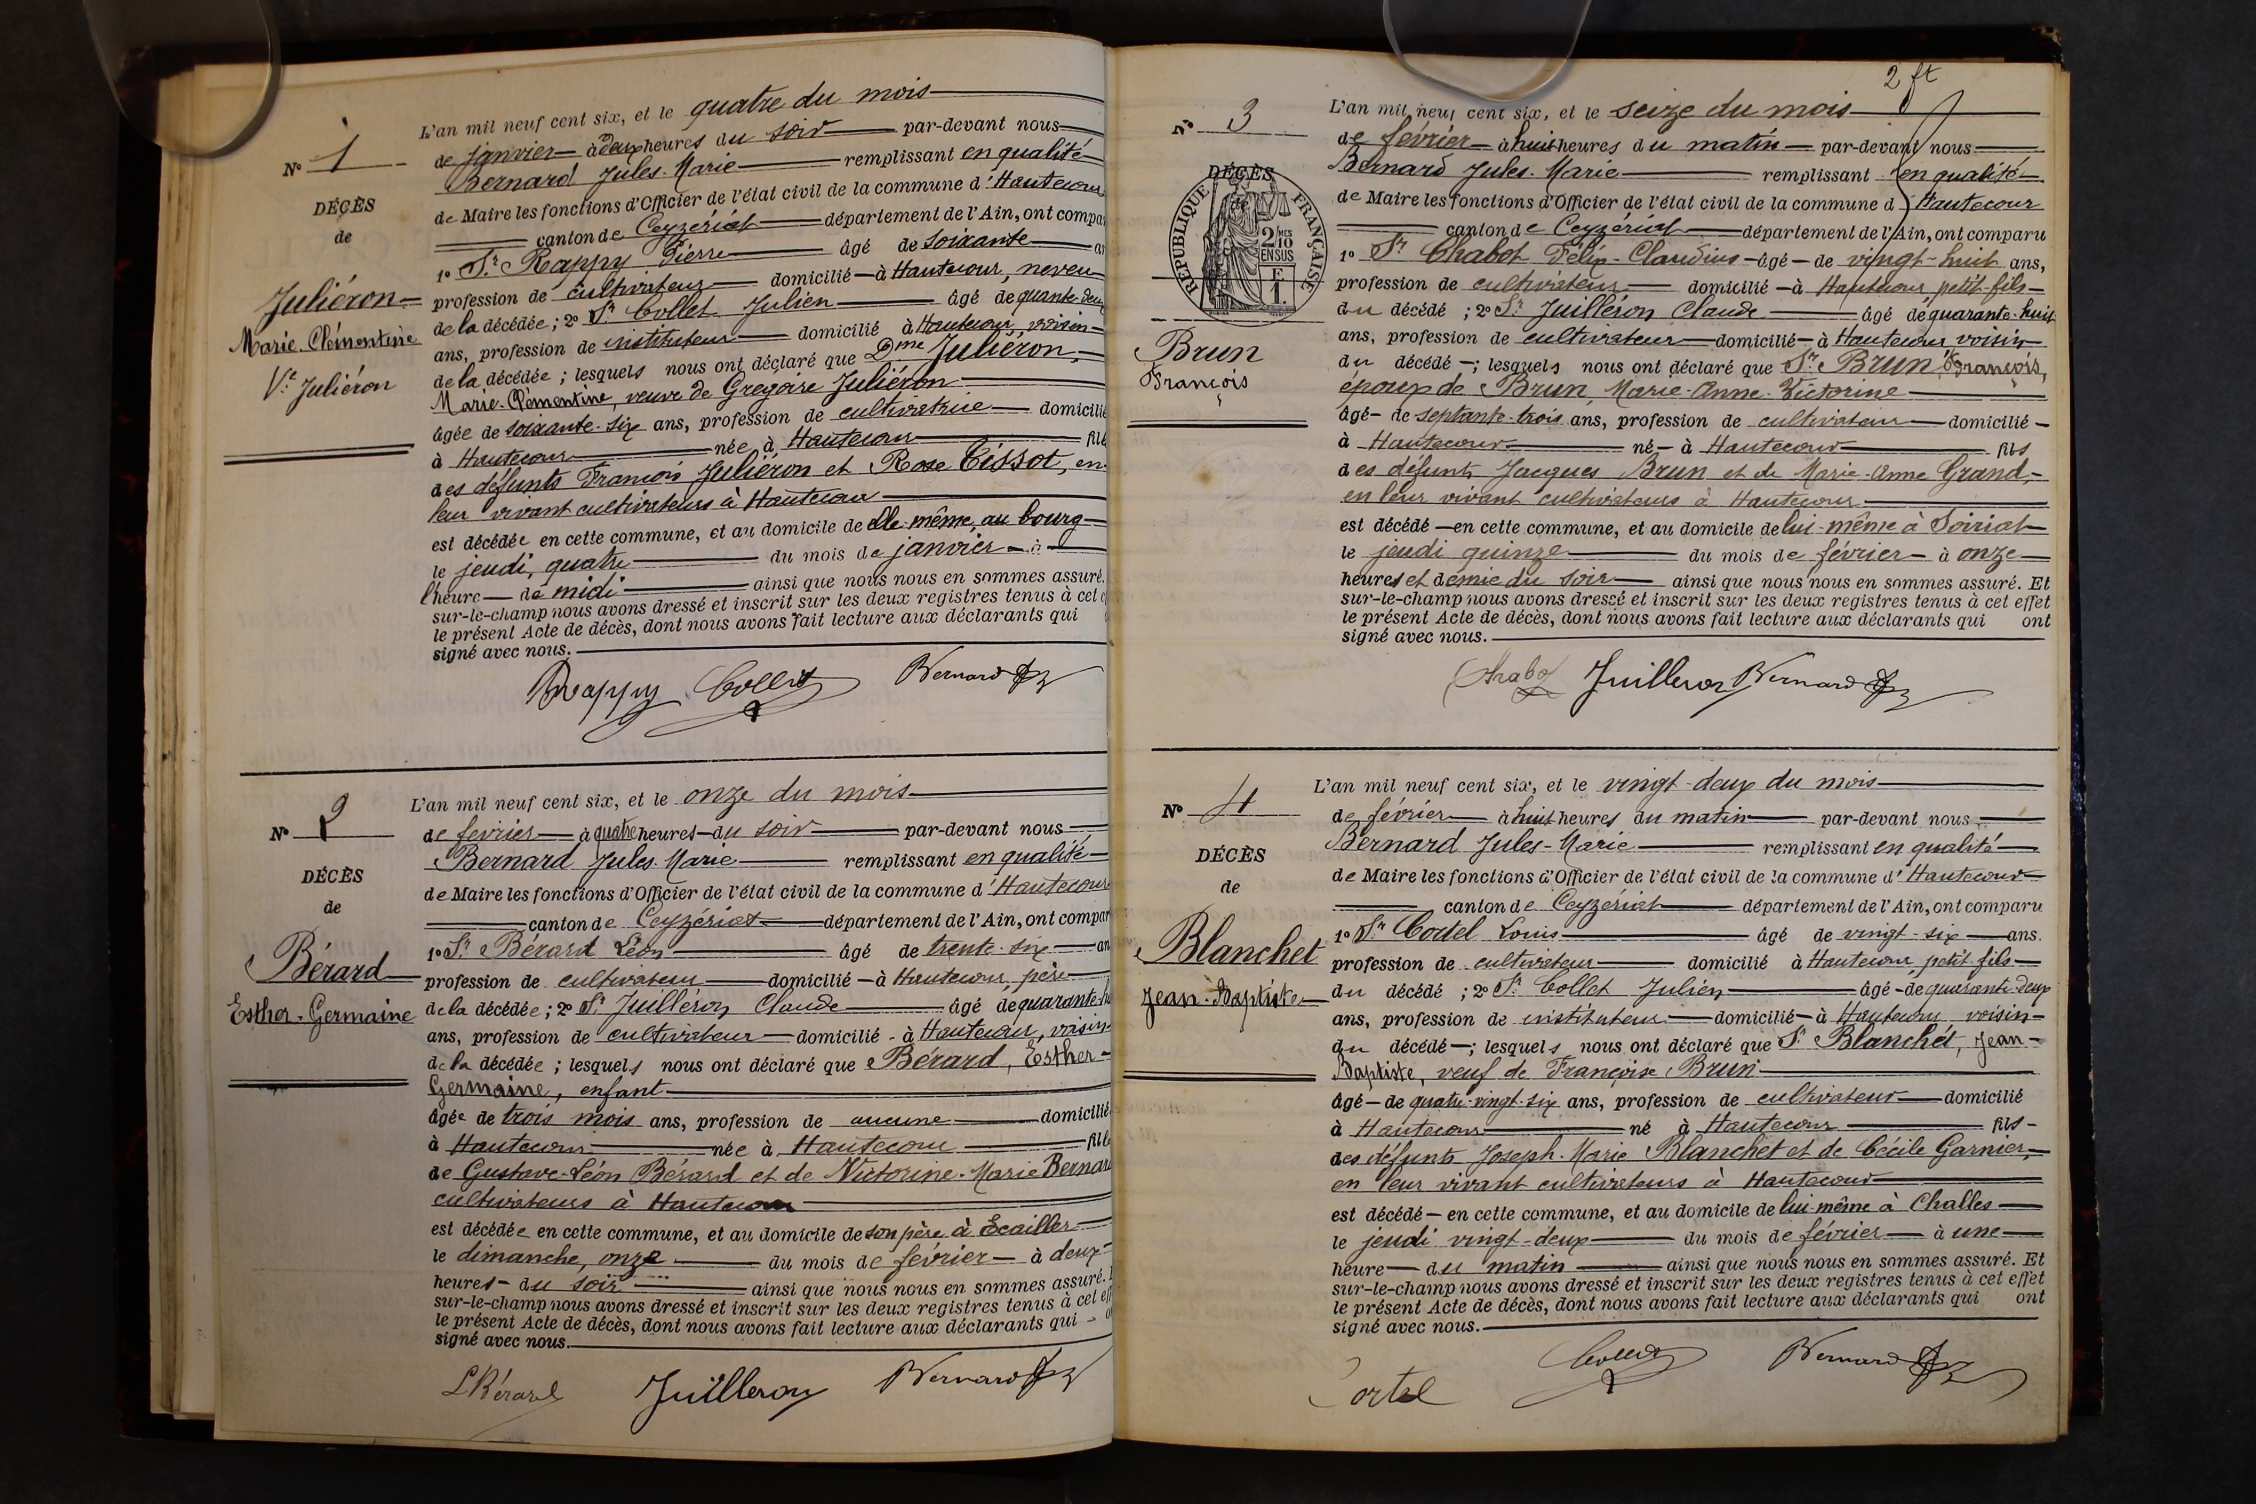 N° 1
DÉCÈS
de
Juliéron
Marie-Clémentine
Ve Juliéron
L'an mil neuf cent six, et le quatre du mois
de janvier à deux heures du soir par-devant nous
Bernard Jules-Marie remplissant en qualité
de Maire les fonctions d'Officier de l'état civil de la commune d'Hautecour
canton de Ceyzériat département de l'Ain, ont compar
1° Sr Rappy Pierre âgé de soixante an
profession de cultivateur domicilié à Hautecour, neveu
de la décédée; 2° Sr Collet Julien âgé de quante-deux
ans, profession de instituteur domicilié à Hautecour, voisin
de la décédée; lesquels nous ont déclaré que Dme Juliéron,
Marie-Clémentine, veuve de Gregoire Juliéron
âgée de soixante-six ans, profession de cultivatrice domicilié
à Hautecour née à Hautecour fille
des défunts François Juliéron et Rose Tissot, en
leur vivant cultivateurs à Hautecour
est décédée en cette commune, et au domicile de elle-même, au bourg
le jeudi, quatre du mois de janvier à
l'heure de midi ainsi que nous nous en sommes assuré.
sur-le-champ nous avons dressé et inscrit sur les deux registres tenus à cet e
le présent Acte de décès, dont nous avons fait lecture aux déclarants qui
signé avec nous.
Rappy Collet Bernard
N° 2
DÉCÈS
de
Bérard
Esther-Germaine
L'an mil neuf cent six, et le onze du mois
de fevrier à quatre heures du soir par-devant nous
Bernard Jules-Marie remplissant en qualité
de Maire les fonctions d'Officier de l'état civil de la commune d'Hautecour
canton de Ceyzériat département de l'Ain, ont compar
1° Sr Bérard Léon âgé de trente-six an
profession de cultivateur domicilié à Hautecour, père
de la décédée; 2° Sr Juilléron Claude âgé de quarante-hu
ans, profession de cultivateur domicilié à Hautecour, voisin
de la décédée; lesquels nous ont déclaré que Bérard, Esther-
Germaine, enfant
âgée de trois mois ans, profession de aucune domicilié
à Hautecour née à Hautecour fille
de Gustave-Léon Bérard et de Victorine-Marie Bernard
cultivateurs à Hautecour
est décédée en cette commune, et au domicile de son père à Ecailler
le dimanche, onze du mois de fevrier à deux
heures du soir ainsi que nous nous en sommes assuré.
sur-le-champ nous avons dressé et inscrit sur les deux registres tenus à cet eff
le présent Acte de décès, dont nous avons fait lecture aux déclarants qui
signé avec nous.
LBérard Juilleron Bernard
2 ft
N° 3
DÉCÈS
RÉPUBLIQUE FRANÇAISE
2 MES
10
EN SUS
Brun
François
L'an mil neuf cent six, et le seize du mois
de février à huit heures du matin par-devant nous
Bernard Jules-Marie remplissant en qualité
de Maire les fonctions d'Officier de l'état civil de la commune d'Hautecour
canton de Ceyzériat département de l'Ain, ont comparu
1° Sr Chabot Félix-Claudius âgé de vingt-huit ans,
profession de cultivateur domicilié à Hautecour, petit-fils
du décédé; 2° Sr Juilléron Claude âgé de quarante-huit
ans, profession de cultivateur domicilié à Hautecour voisin
du décédé; lesquels nous ont déclaré que Sr Brun, François,
époux de Brun, Marie-Anne-Victorine
âgé de septante-trois ans, profession de cultivateur domicilié
à Hautecour né à Hautecour fils
des défunts Jacques Brun et de Marie-Anne Grand,
en leur vivant cultivateurs à Hautecour
est décédé en cette commune, et au domicile de lui-même à Soiriat
le jeudi quinze du mois de février à onze
heures et demie du soir ainsi que nous nous en sommes assuré. Et
sur-le-champ nous avons dressé et inscrit sur les deux registres tenus à cet effet
le présent Acte de décès, dont nous avons fait lecture aux déclarants qui ont
signé avec nous.
Chabot Juilleron Bernard
N° 4
DÉCÈS
de
Blanchet
Jean-Baptiste
L'an mil neuf cent six, et le vingt-deux du mois
de février à huit heures du matin par-devant nous
Bernard Jules-Marie remplissant en qualité
de Maire les fonctions d'Officier de l'état civil de la commune d'Hautecour
canton de Ceyzériat département de l'Ain, ont comparu
1° Sr Cortel Louis âgé de vingt-six ans.
profession de cultivateur domicilié à Hautecour, petit-fils
du décédé; 2° Sr Collet Julien âgé de quarante-deux
ans, profession de instituteur domicilié à Hautecour voisin
du décédé; lesquels nous ont déclaré que Sr Blanchet, Jean-
Baptiste, veuf de Françoise Brun
âgé de quatre-vingt-six ans, profession de cultivateur domicilié
à Hautecour né à Hautecour fils
des défunts Joseph-Marie Blanchet et de Cécile Garnier,
en leur vivant cultivateurs à Hautecour
est décédé en cette commune, et au domicile de lui-même à Challes
le jeudi vingt-deux du mois de février à une
heure du matin ainsi que nous nous en sommes assuré. Et
sur-le-champ nous avons dressé et inscrit sur les deux registres tenus à cet effet
le présent Acte de décès, dont nous avons fait lecture aux déclarants qui ont
signé avec nous.
Cortel Collet Bernard